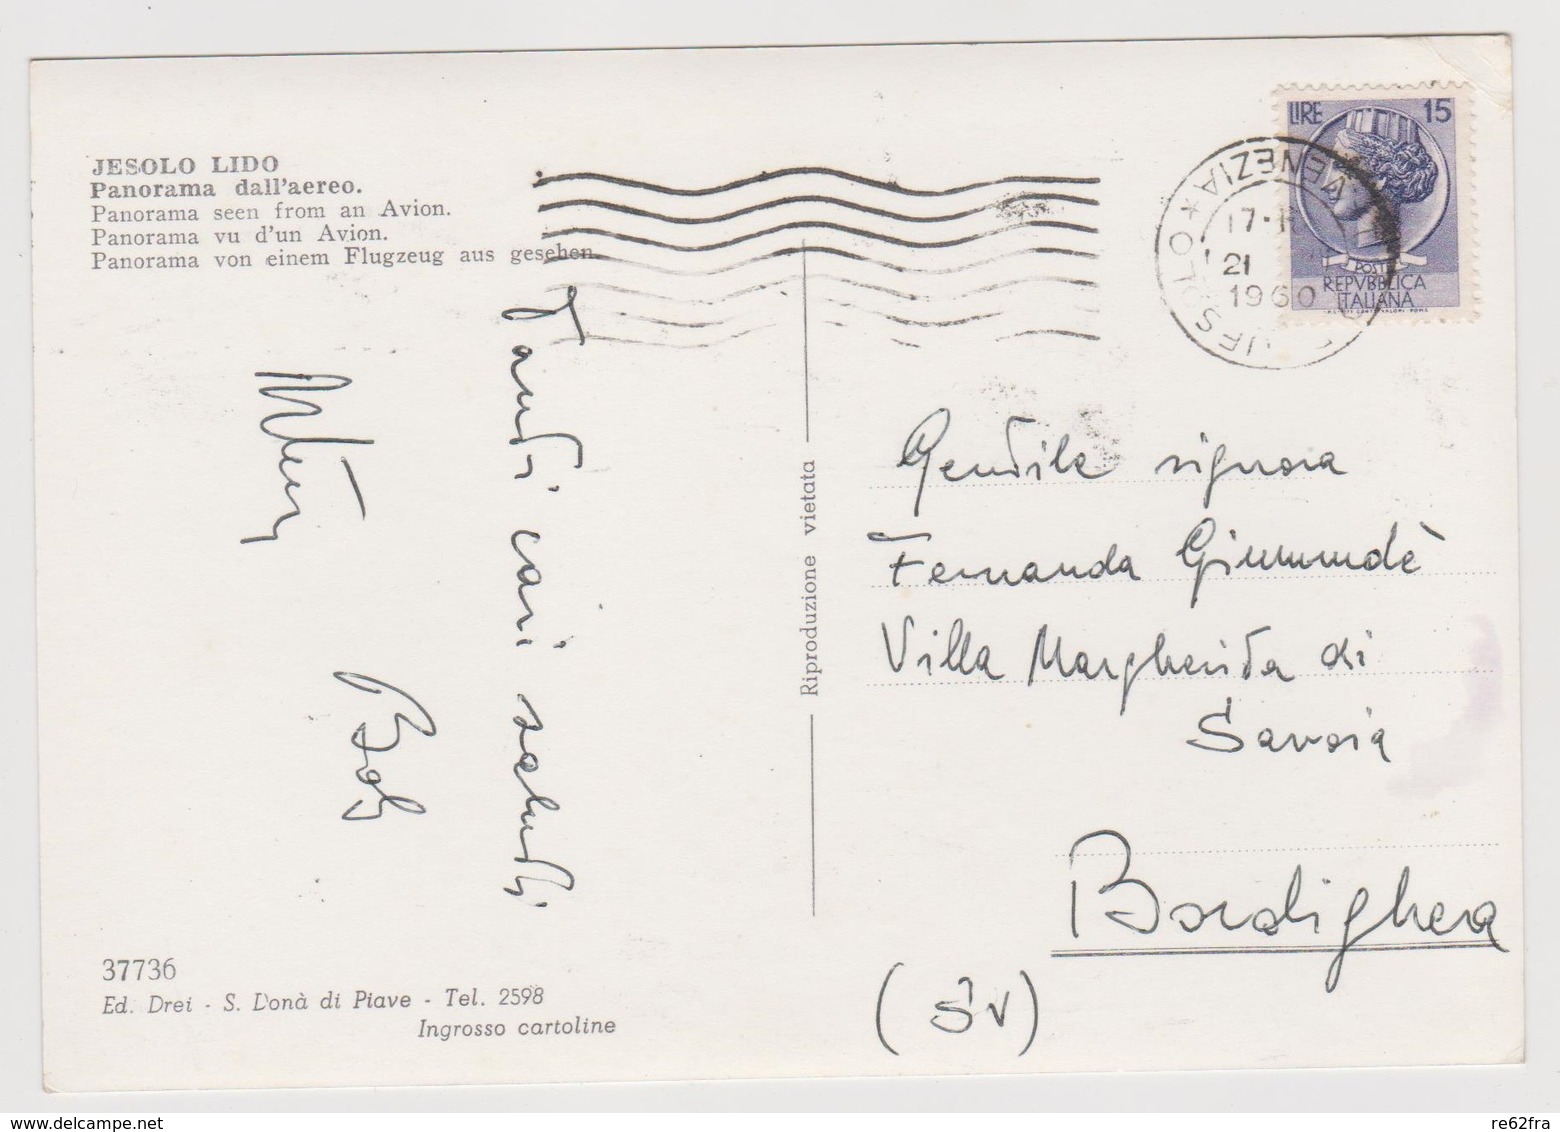 JESOLO LIDO
Panorama dall'aereo.
Panorama seen from an Avion.
Panorama vu d'un Avion.
Panorama von einem Flugzeug aus gesehen.
Tanti cari saluti
Bob
37736
Ed. Drei - S. Donà di Piave - Tel. 2598
Ingrosso cartoline
Riproduzione vietata
LIRE 15
POSTE
REPVBBLICA
ITALIANA
VENEZIA
17-
21
1960
Gentile signora
Fernanda
Villa Margherita di
Savoia
Bordighera
(SV)
www.delcampe.net
re62fra